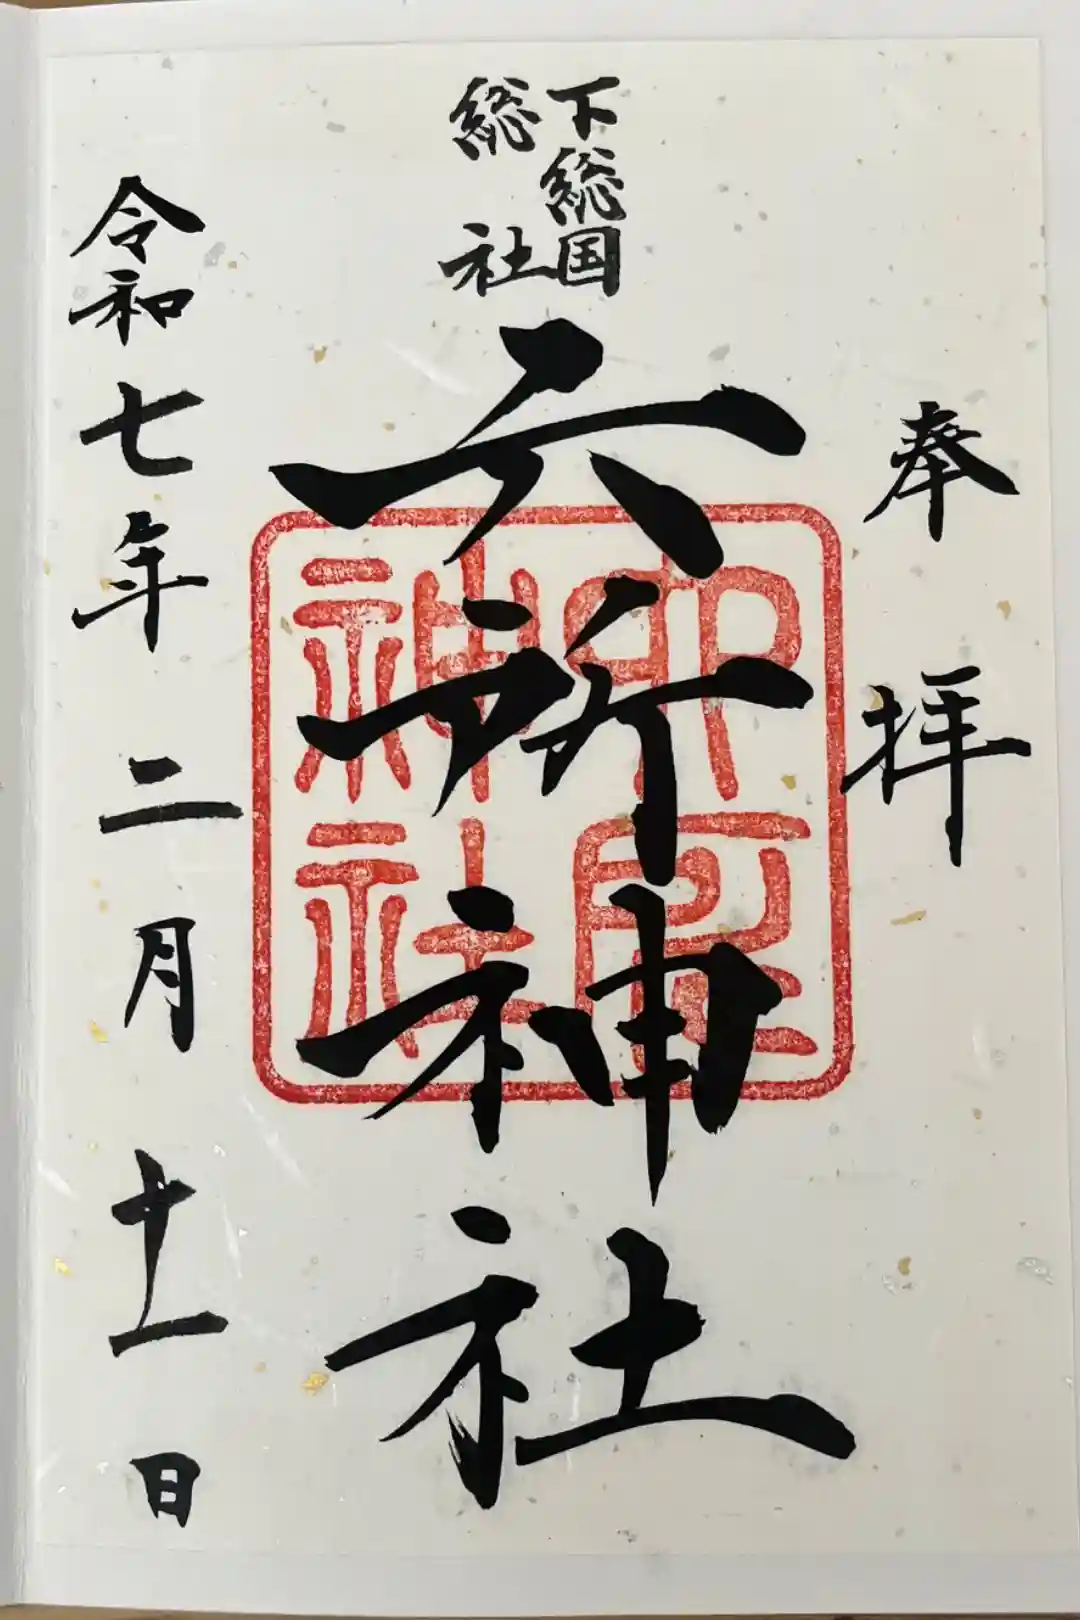 奉拝
下総国
総社
六所神社
神社
令和七年二月十一日